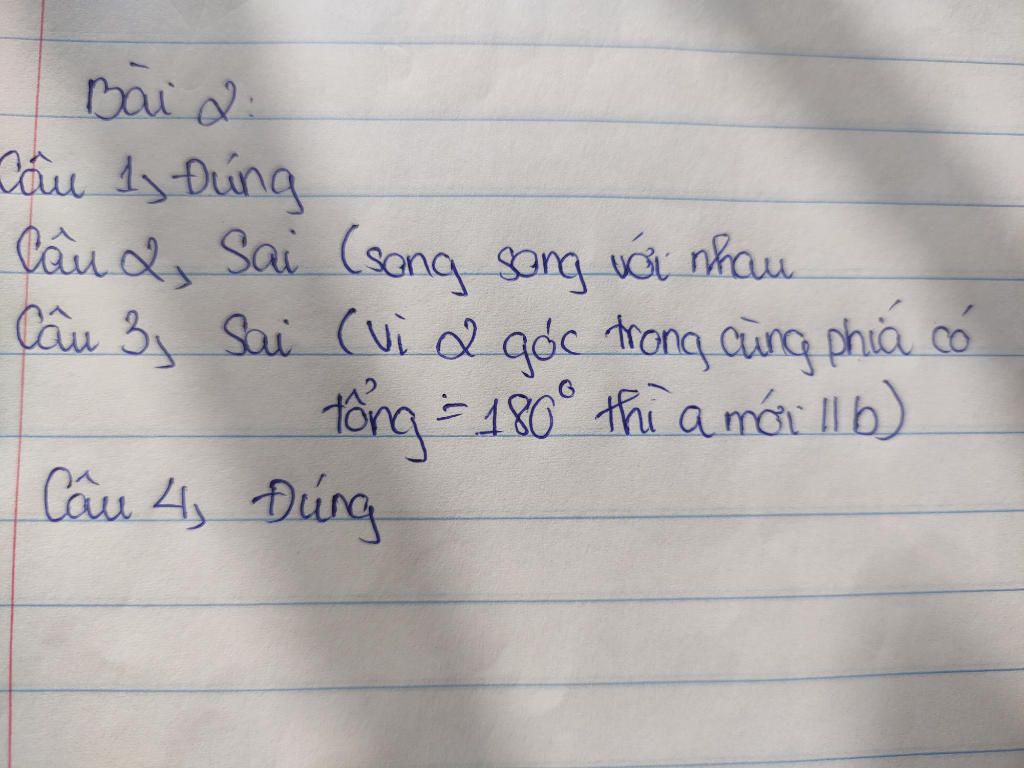 Bài 2:
Câu 1, Đúng
Câu 2, Sai (song song với nhau
Câu 3, Sai (Vì 2 góc trong cùng phiá có
tổng = 180° thì a mới // b)
Câu 4, Đúng